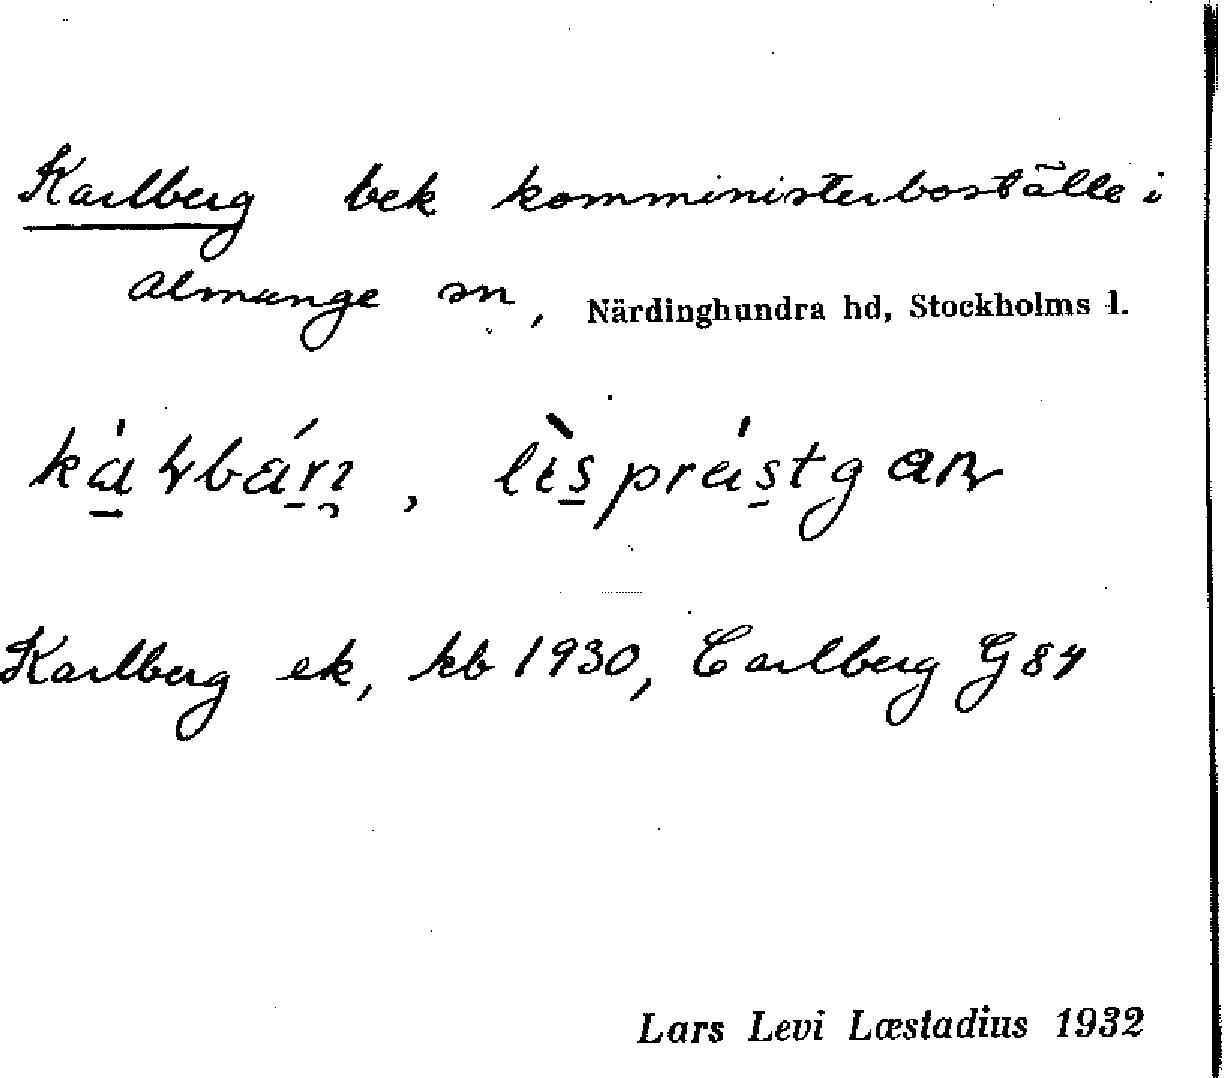 Karlberg bek komministerboställe i
Almunge sn, Närdinghundra hd, Stockholms l.
Karlberg ek, kb 1930, Carlberg G 84
Lars Levi Læstadius 1932